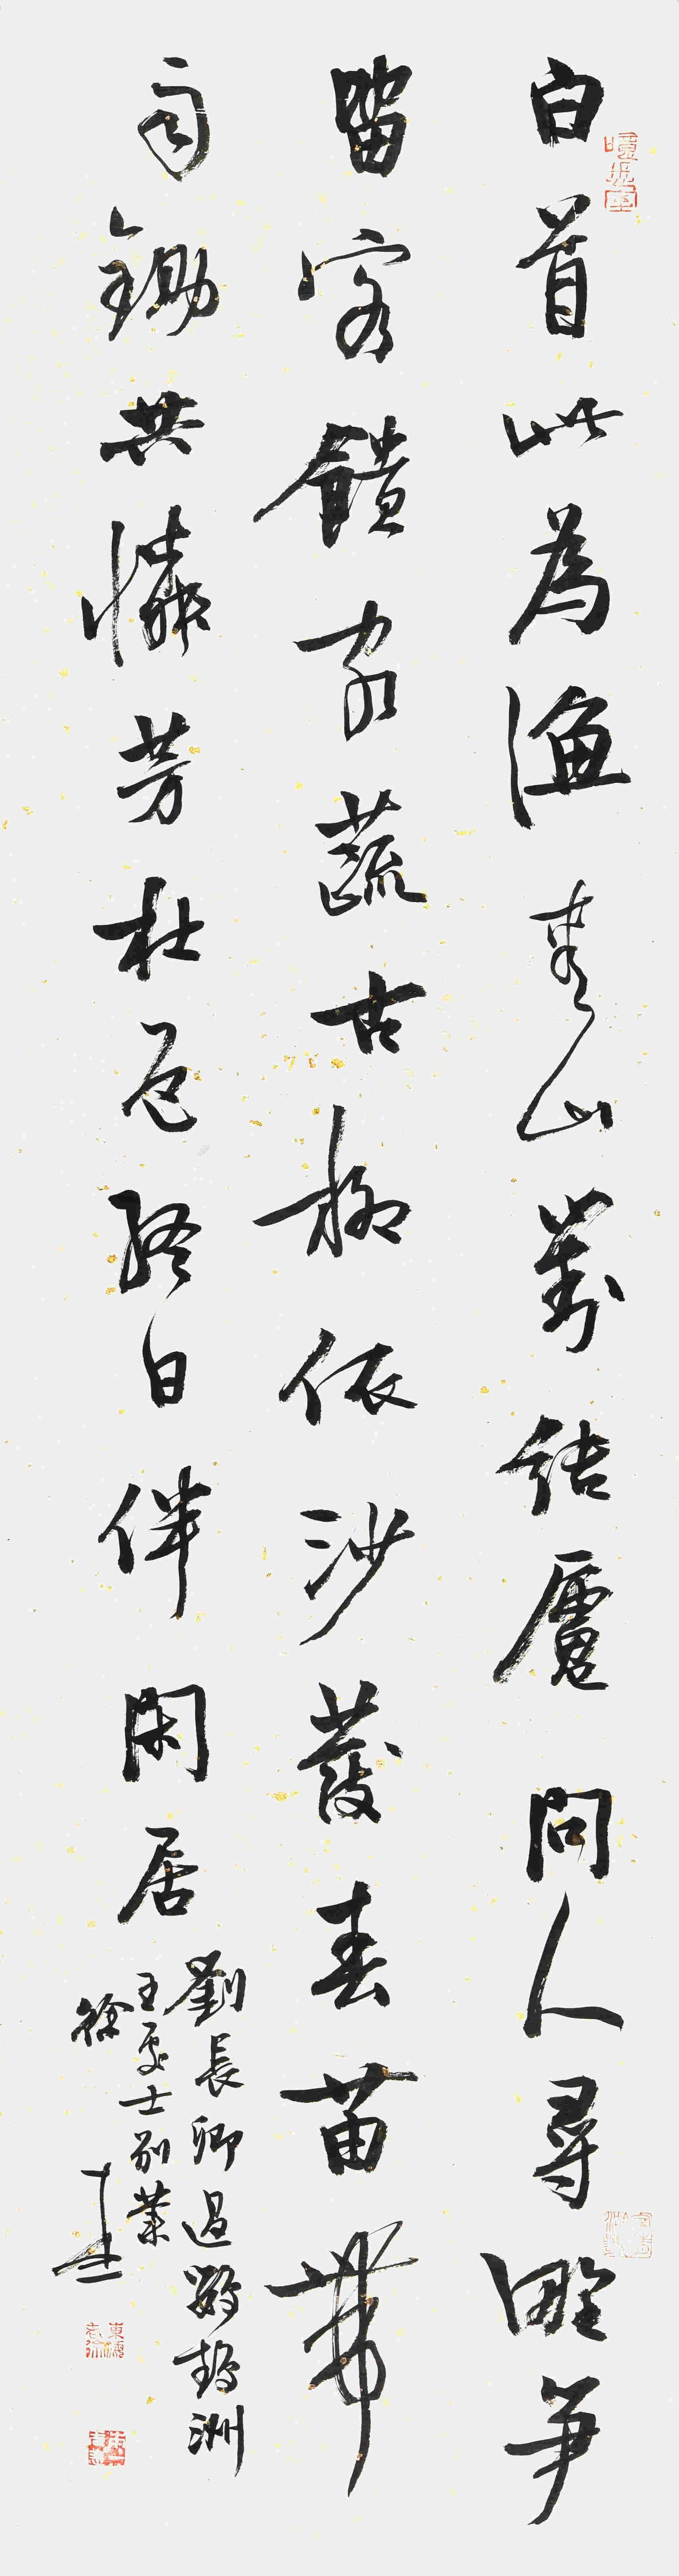 白首此為漁青山對結廬問人尋野笋
留客饋家蔬古柳依沙發春苗帶
雨鋤共憐芳杜色終日伴閑居
劉長卿過鸚鵡洲
王處士別業
徐